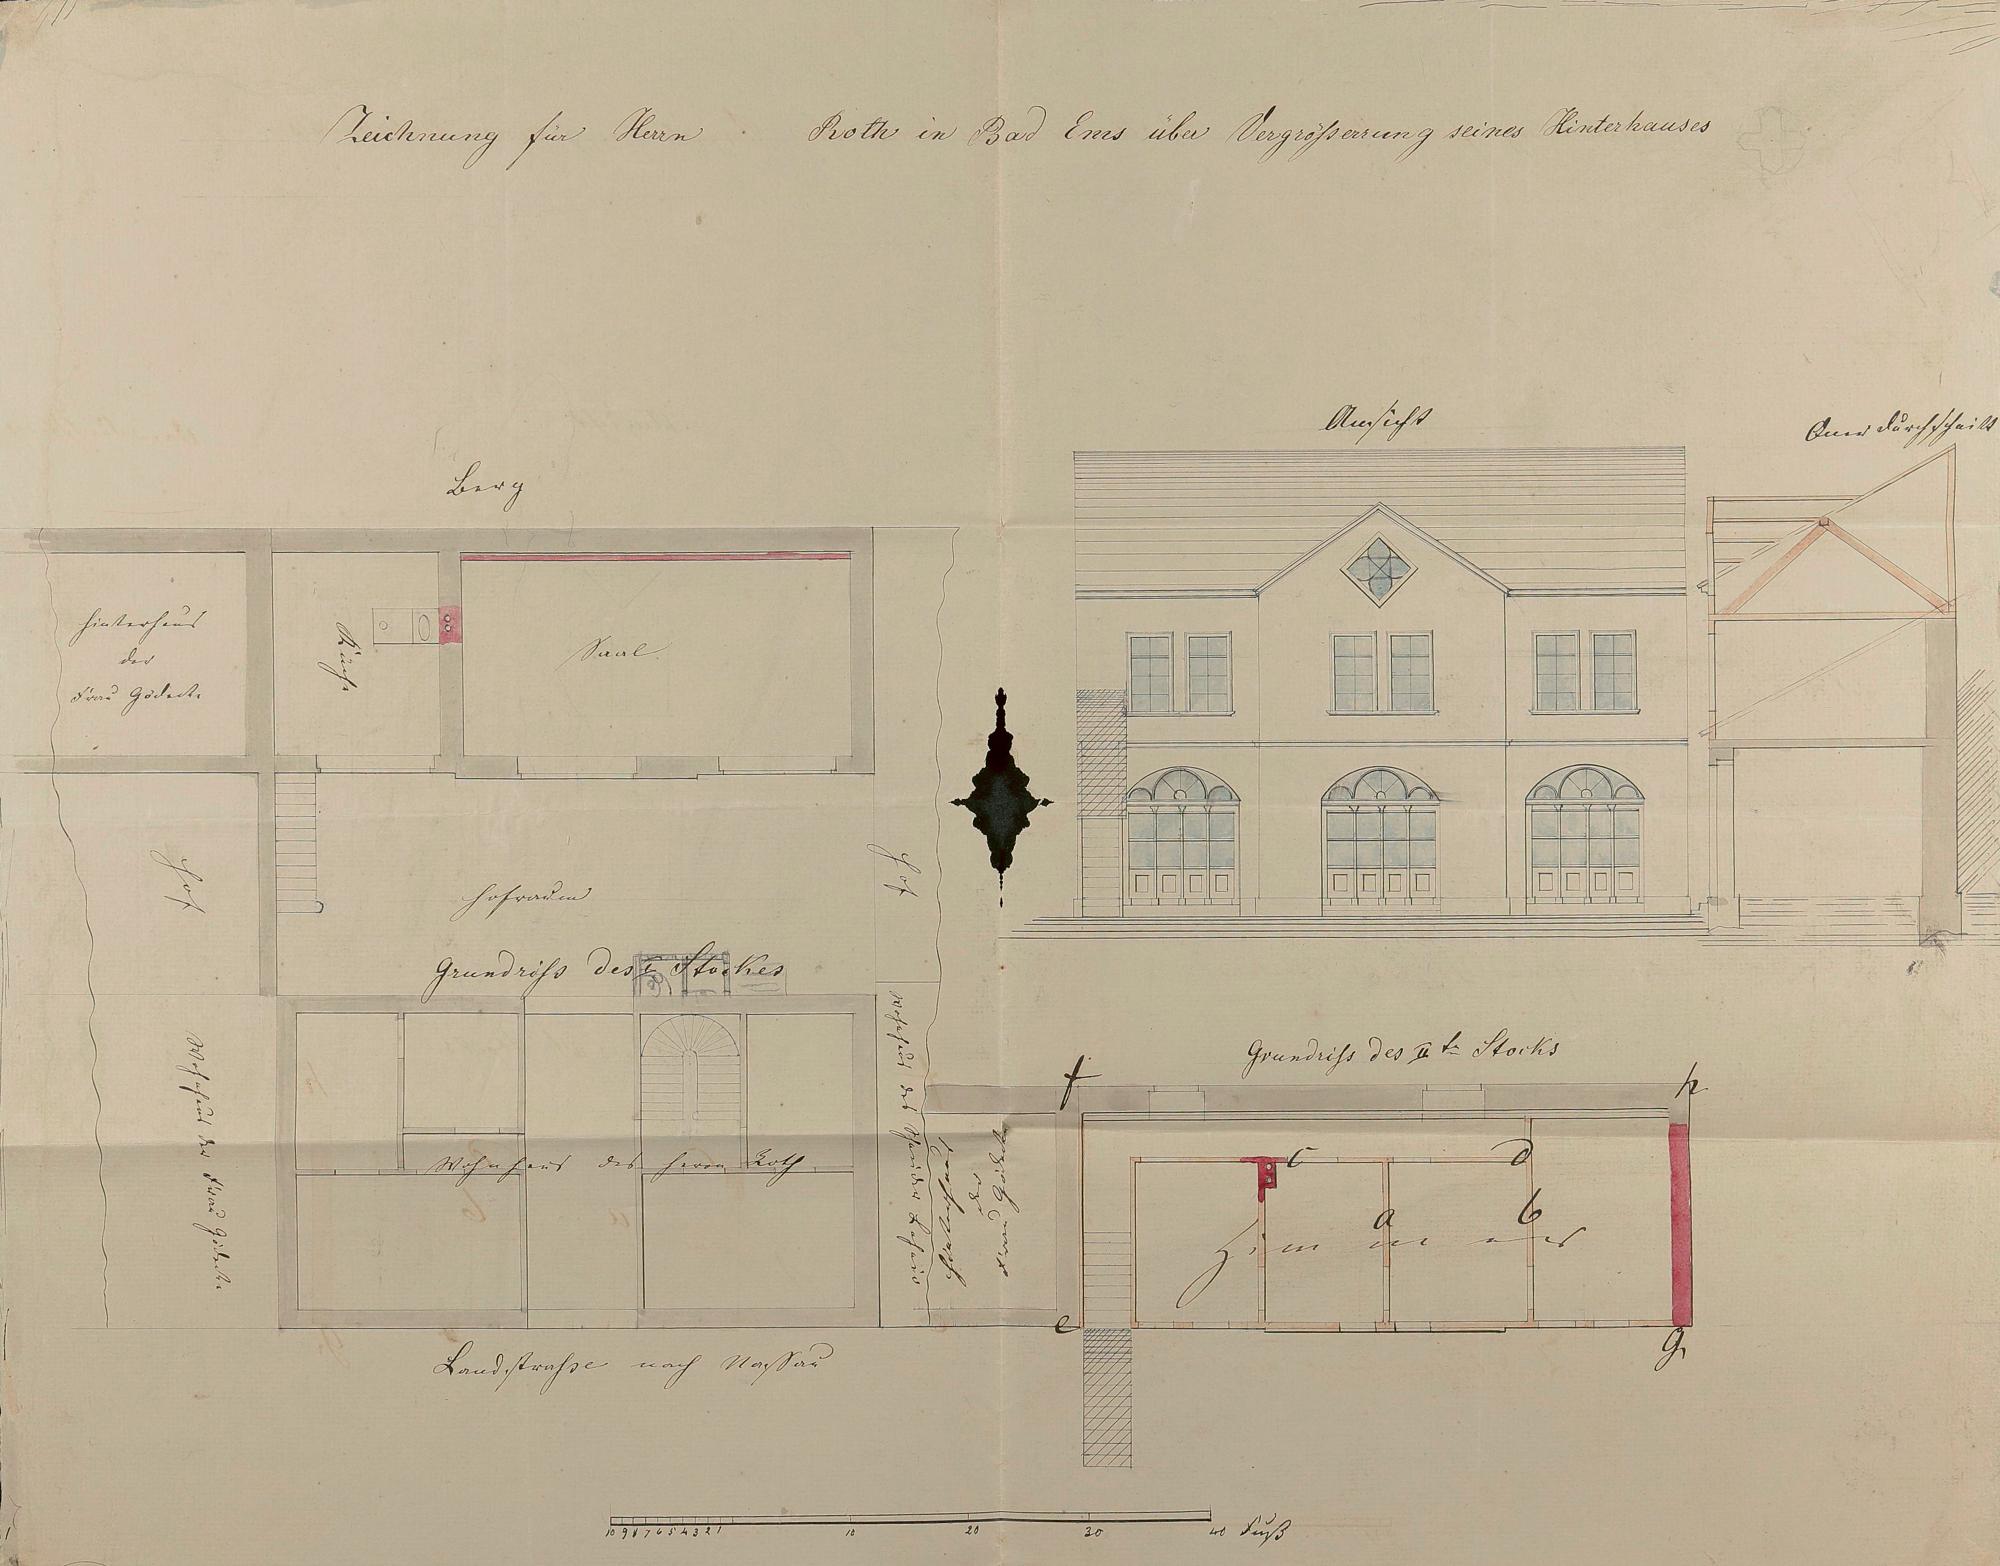 Zeichnung für Herrn Roth in Bad Ems über Vergrößerrung seines Hinterhauses
Ansicht
Quer durchschnitt
Berg
Hinterhaus
der
Frau Gödecke
Küche
Saal
Hof
Hofraum
Hof
Grundriss des I Stockes
Wohnhaus der Frau Gödecke
Wohnhaus des Herrn Roth
Wohnhaus des
Hinterhaus
der
Frau Gödecke
Landstraße nach Nassau
Grundriss des II ten Stocks
f
h
c
d
a
b
Zimmer
e
g
10 9 8 7 6 5 4 3 2 1 10 20 30 40 Fuß